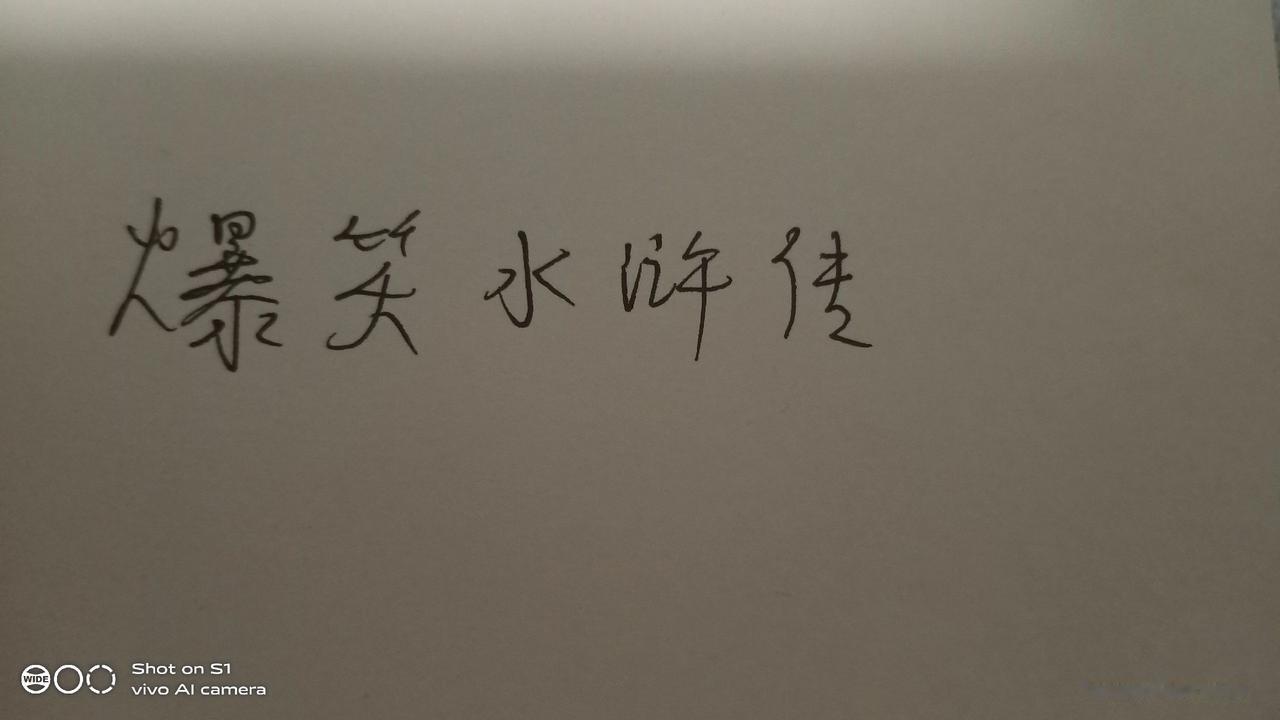 爆笑水浒传
WIDE
Shot on S1
vivo AI camera